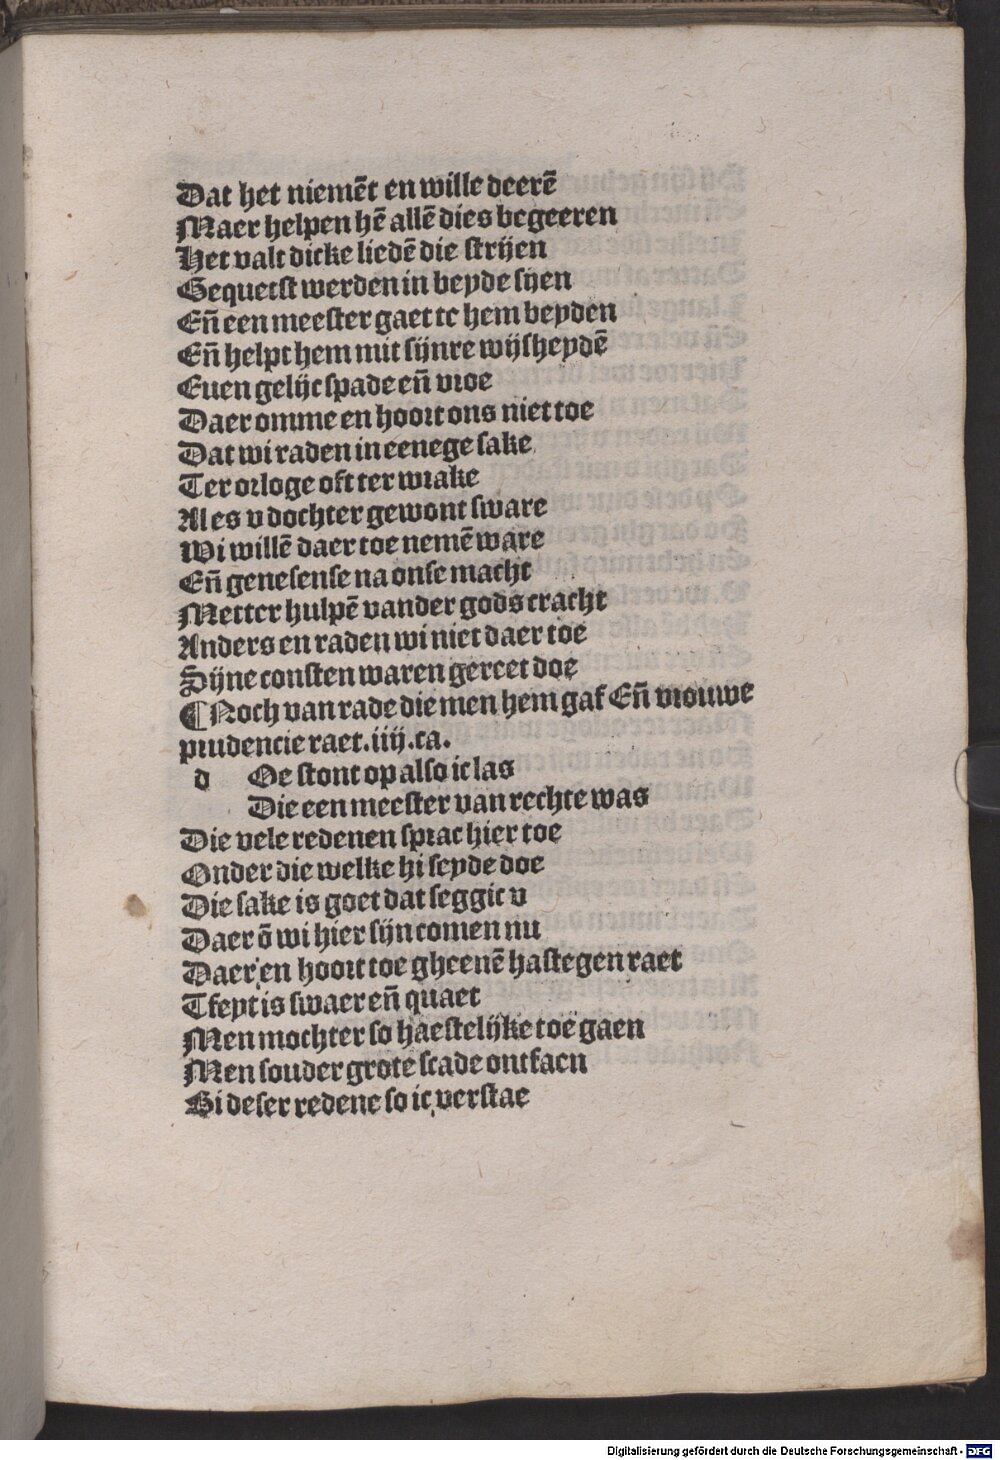 Dat het niemēt en wille deerē
Maer helpen hē allē dies begeeren
Het valt dicke liedē die strijen
Gequetst werden in beyde sijen
Eñ een meester gaet te hem beyden
Eñ helpt hem mit sijnre wijsheydē
Euen gelijc spade eñ vroe
Daer omme en hoort ons niet toe
Dat wi raden in eenege sake
Ter orloge oft ter wrake
Al es v dochter gewont sware
Wi willē daer toe nemē ware
Eñ genesense na onse macht
Metter hulpē vander gods cracht
Anders en raden wi niet daer toe
Sijne consten waren gereet doe
¶ Noch van rade die men hem gaf Eñ vrouwe
prudencie raet .iiij. ca.
d Oe stont op also ic las
Die een meester van rechte was
Die vele redenen sprac hier toe
Onder die welke hi seyde doe
Die sake is goet dat seggic v
Daer ō wi hier sijn comen nu
Daer en hoort toe gheenē hastegen raet
Tfeyt is swaer eñ quaet
Men mochter so haestelijke toe gaen
Men souder grote scade ontfaen
Bi deser redene so ic verstae
Digitalisierung gefördert durch die Deutsche Forschungsgemeinschaft - DFG